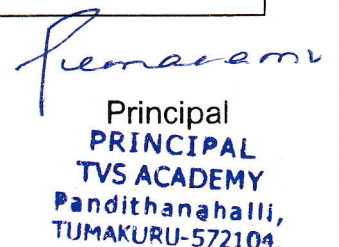 Principal
PRINCIPAL
TVS ACADEMY
Pandithanahalli,
TUMAKURU-572104